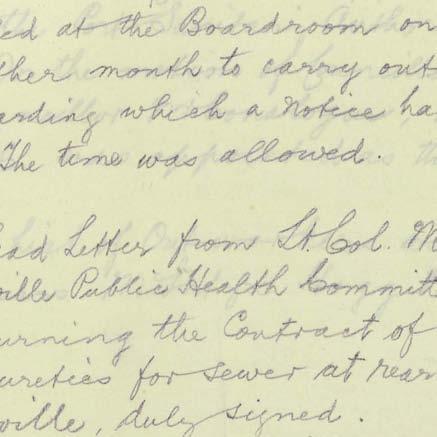 ed at the Boardroom on
ther month to carry out
arding which a notice ha
The time was allowed.
ead Letter from Lt. Col. M
ville Public Health Committ
urning the Contract of
ureties for sewer at rear
ville, duly signed.